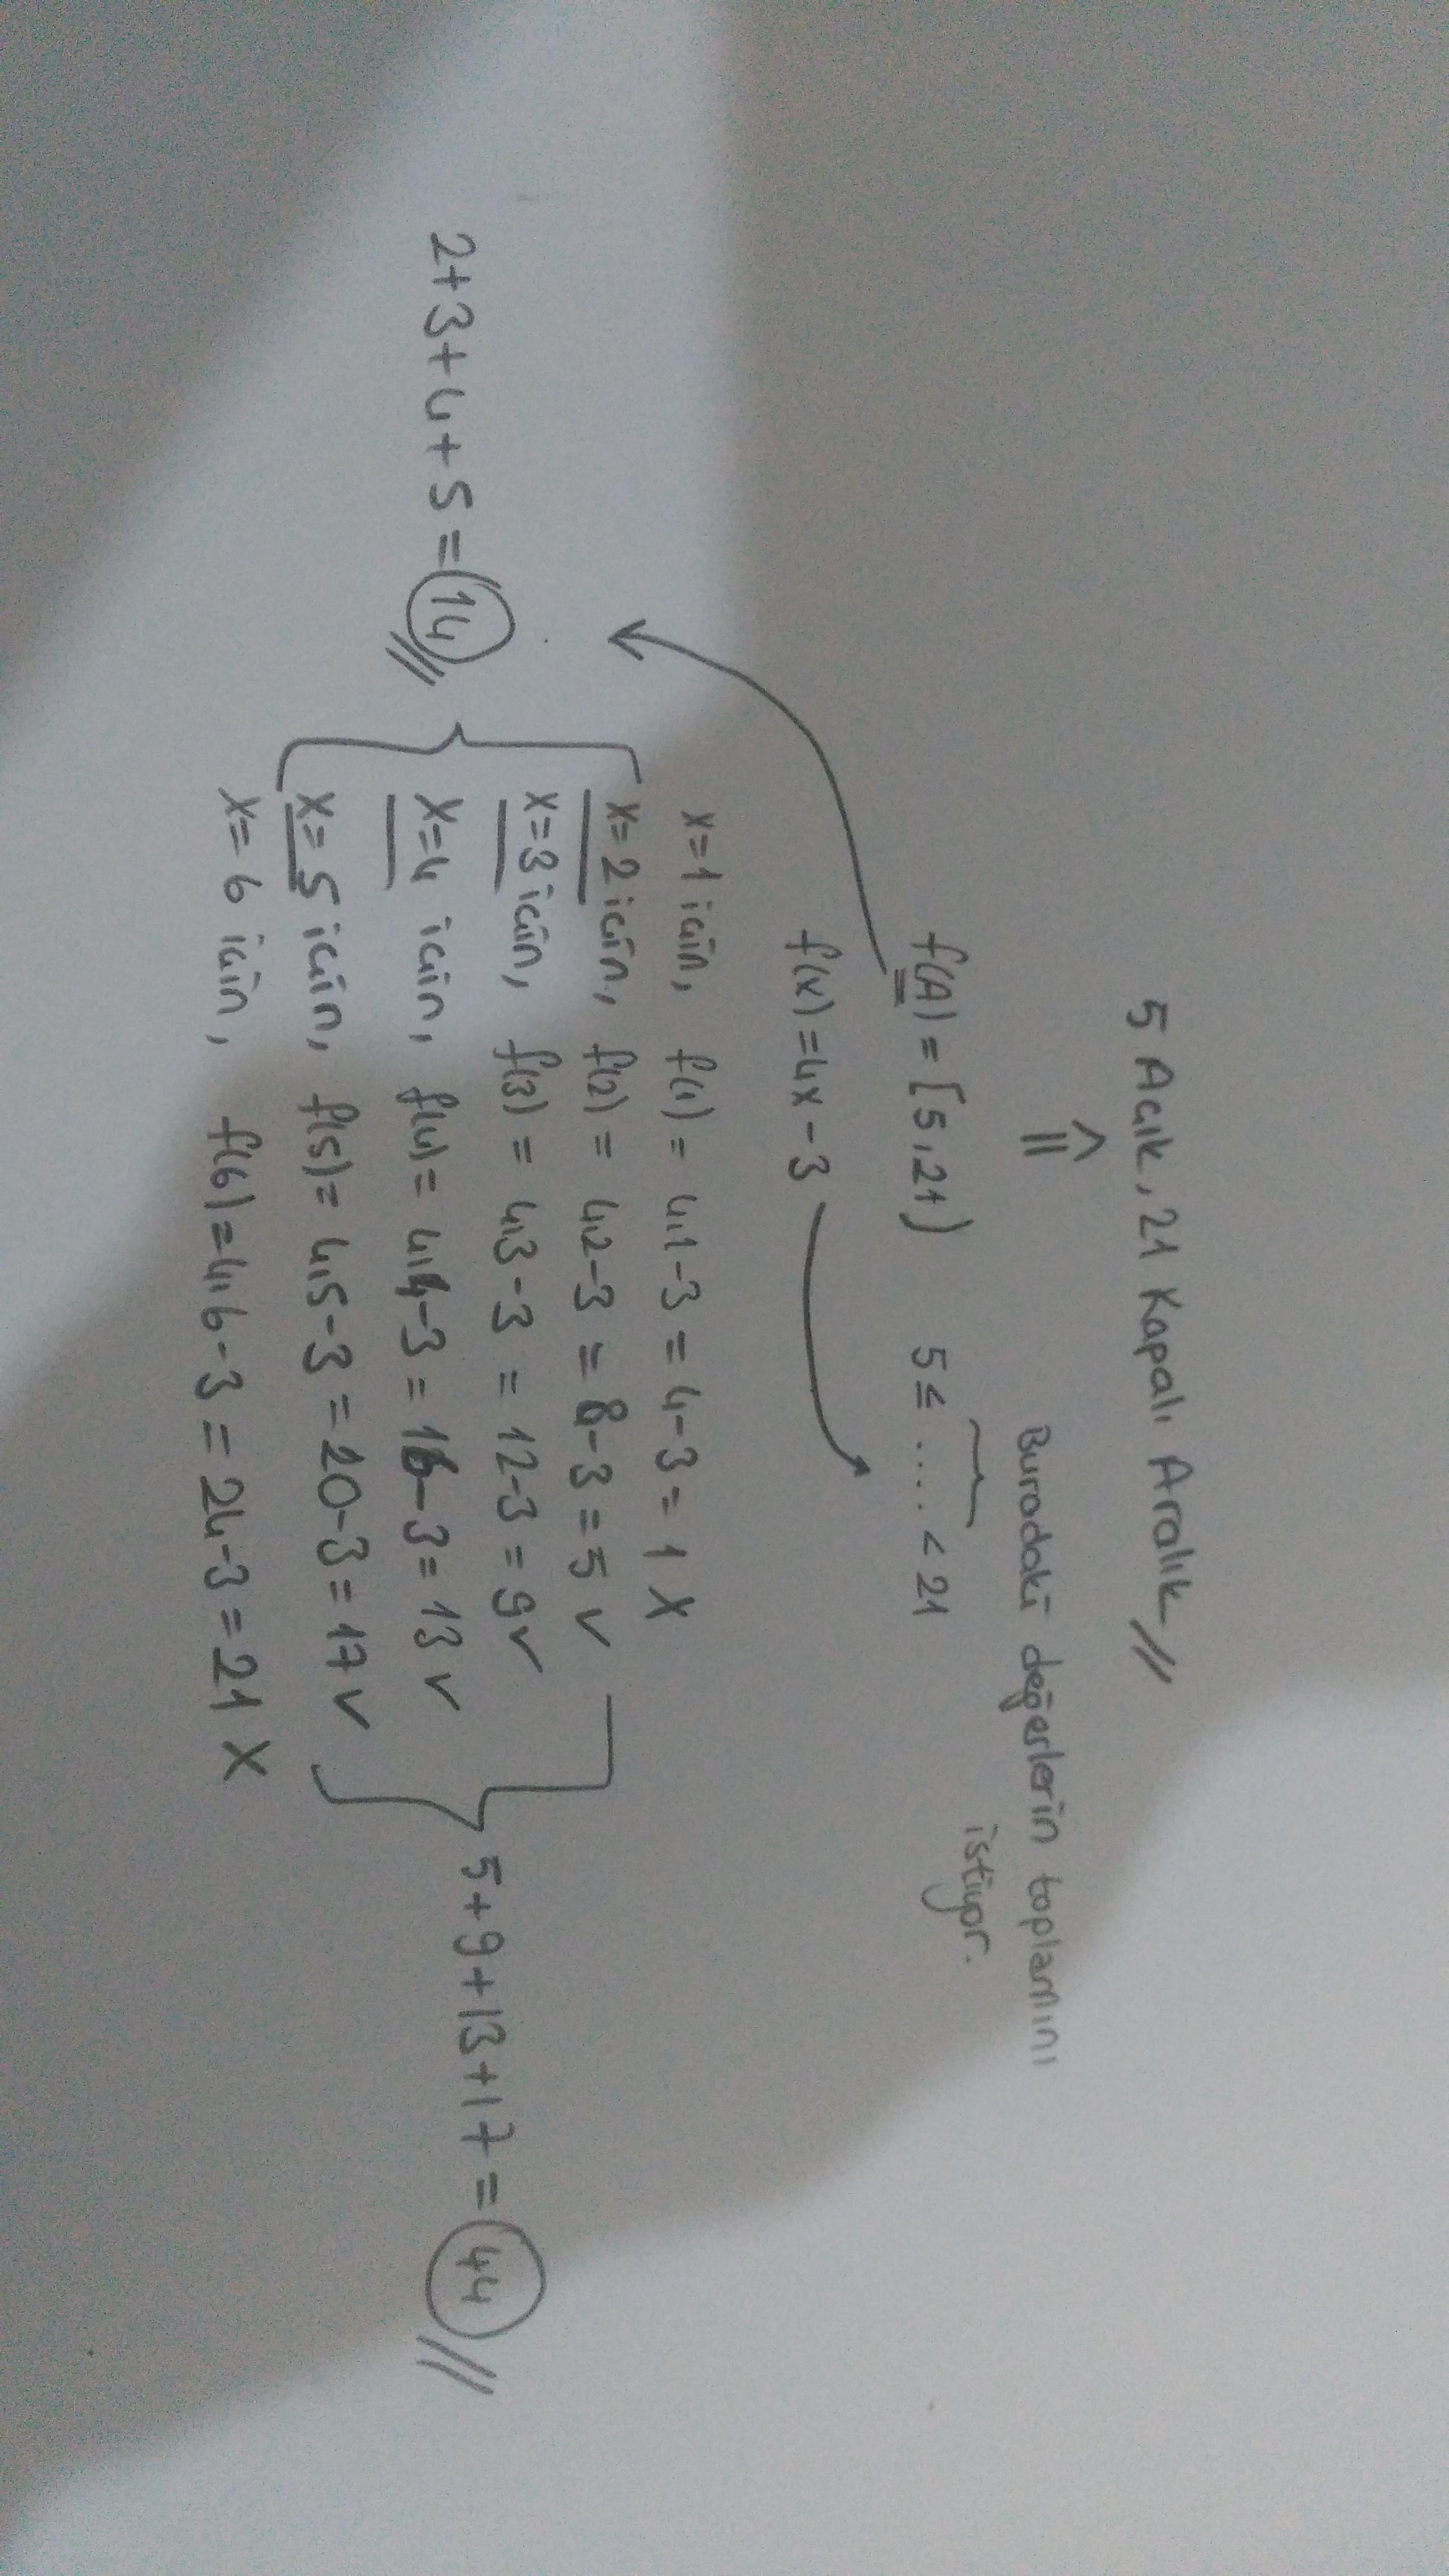 5 Açık, 21 Kapalı Aralık //
f(A) = [5,21) 5 ≤ .... < 21
Buradaki değerlerin toplamını
istiyor.
f(x) = 4x - 3
x=1 için, f(1) = 4.1-3 = 4-3 = 1 X
x=2 için, f(2) = 4.2-3 = 8-3 = 5 ✓
x=3 için, f(3) = 4.3-3 = 12-3 = 9 ✓
x=4 için, f(4) = 4.4-3 = 16-3 = 13 ✓
x=5 için, f(5) = 4.5-3 = 20-3 = 17 ✓
x=6 için, f(6) = 4.6-3 = 24-3 = 21 X
2+3+4+5 = 14 //
5+9+13+17 = 44 //